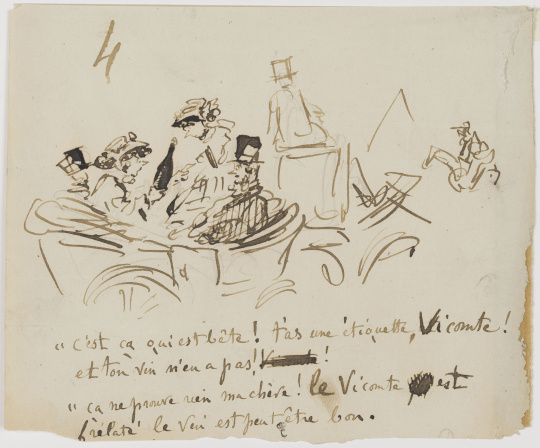 4
"c'est ça qui est bête ! t'as une étiquette, Vicomte !
et ton vin n'en a pas ! !
"ça ne prouve rien ma chère ! le Vicomte est
frelaté le vin est peut être bon.